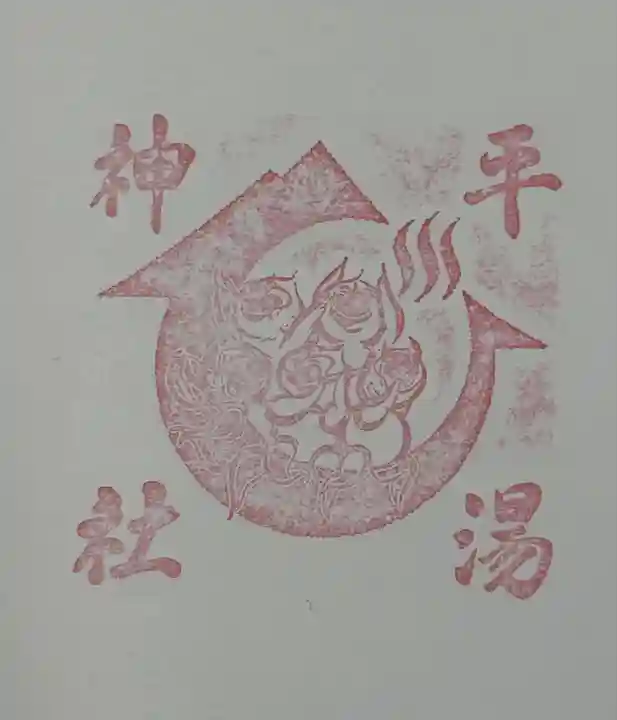 平湯
神社